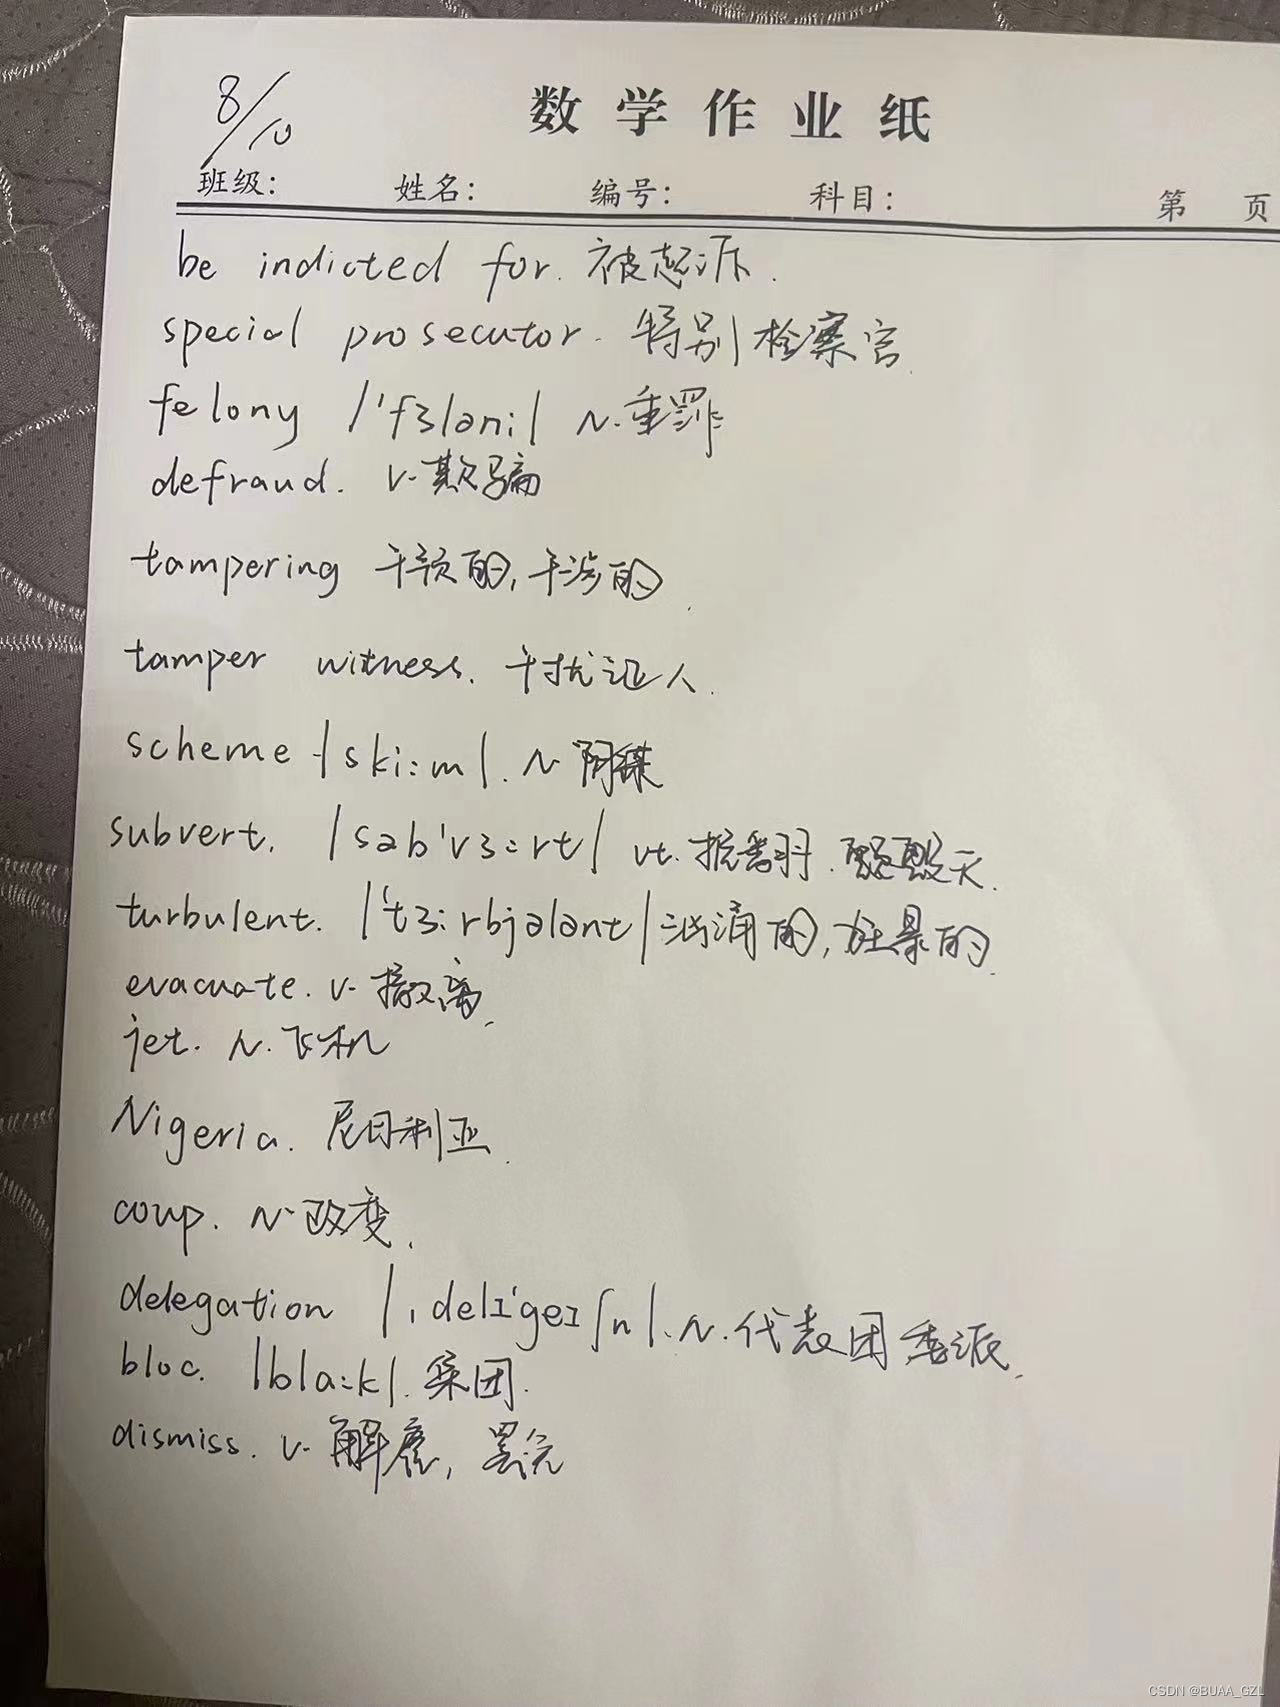 8/10
数学作业纸
班级: 姓名: 编号: 科目: 第 页
be indicted for. 被起诉.
special prosecutor. 特别检察官.
felony /'fɜləni/ n.重罪
defraud. v.欺骗
tampering 干预的,干涉的.
tamper witness. 干扰证人.
scheme /ski:m/. n.阴谋
subvert. /səb'vɜ:rt/ vt. 搅翻.
turbulent. /'tɜ:rbjələnt/ 汹涌的,狂暴的.
evacuate. v.撤离.
jet. n.飞机
Nigeria. 尼日利亚.
coup. n.改变.
delegation /,delɪ'geɪʃn/. n.代表团,委派.
bloc. /bla:k/. 集团.
dismiss. v.解雇,
CSDN @BUAA_GZL